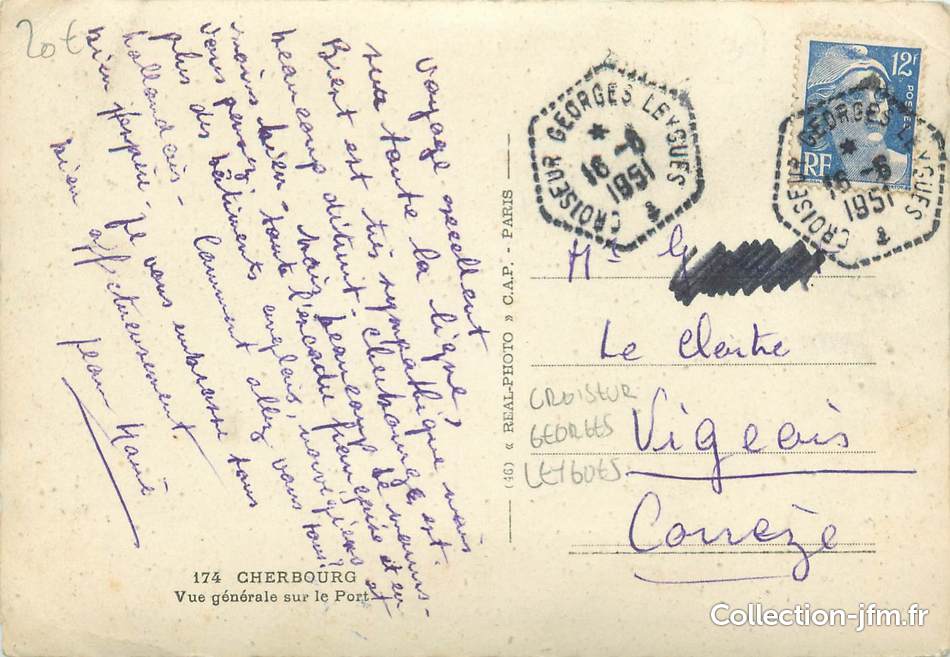 20€
Voyage excellent
sur toute la ligne,
Brest est très sympathique mais
beaucoup détruit - Cherbourg est
moins bien - toute l'escadre française est
vous pensez mais beaucoup de
plus des bâtiments anglais, norvégiens et
hollandais - Comment allez vous tous?
bien j'espère - Je vous embrasse tous
bien affectueusement.
Jean Marie
174 CHERBOURG
Vue générale sur le Port
(46) « REAL-PHOTO » C.A.P. - PARIS
CROISEUR GEORGES LEYGUES
16 - 6
1951
12F
POSTES
RF
CROISEUR GEORGES LEYGUES
16 - 6
1951
Mr G
Le Cloître
Vigeois
Corrèze
CROISEUR
GEORGES
LEYGUES
Collection-jfm.fr